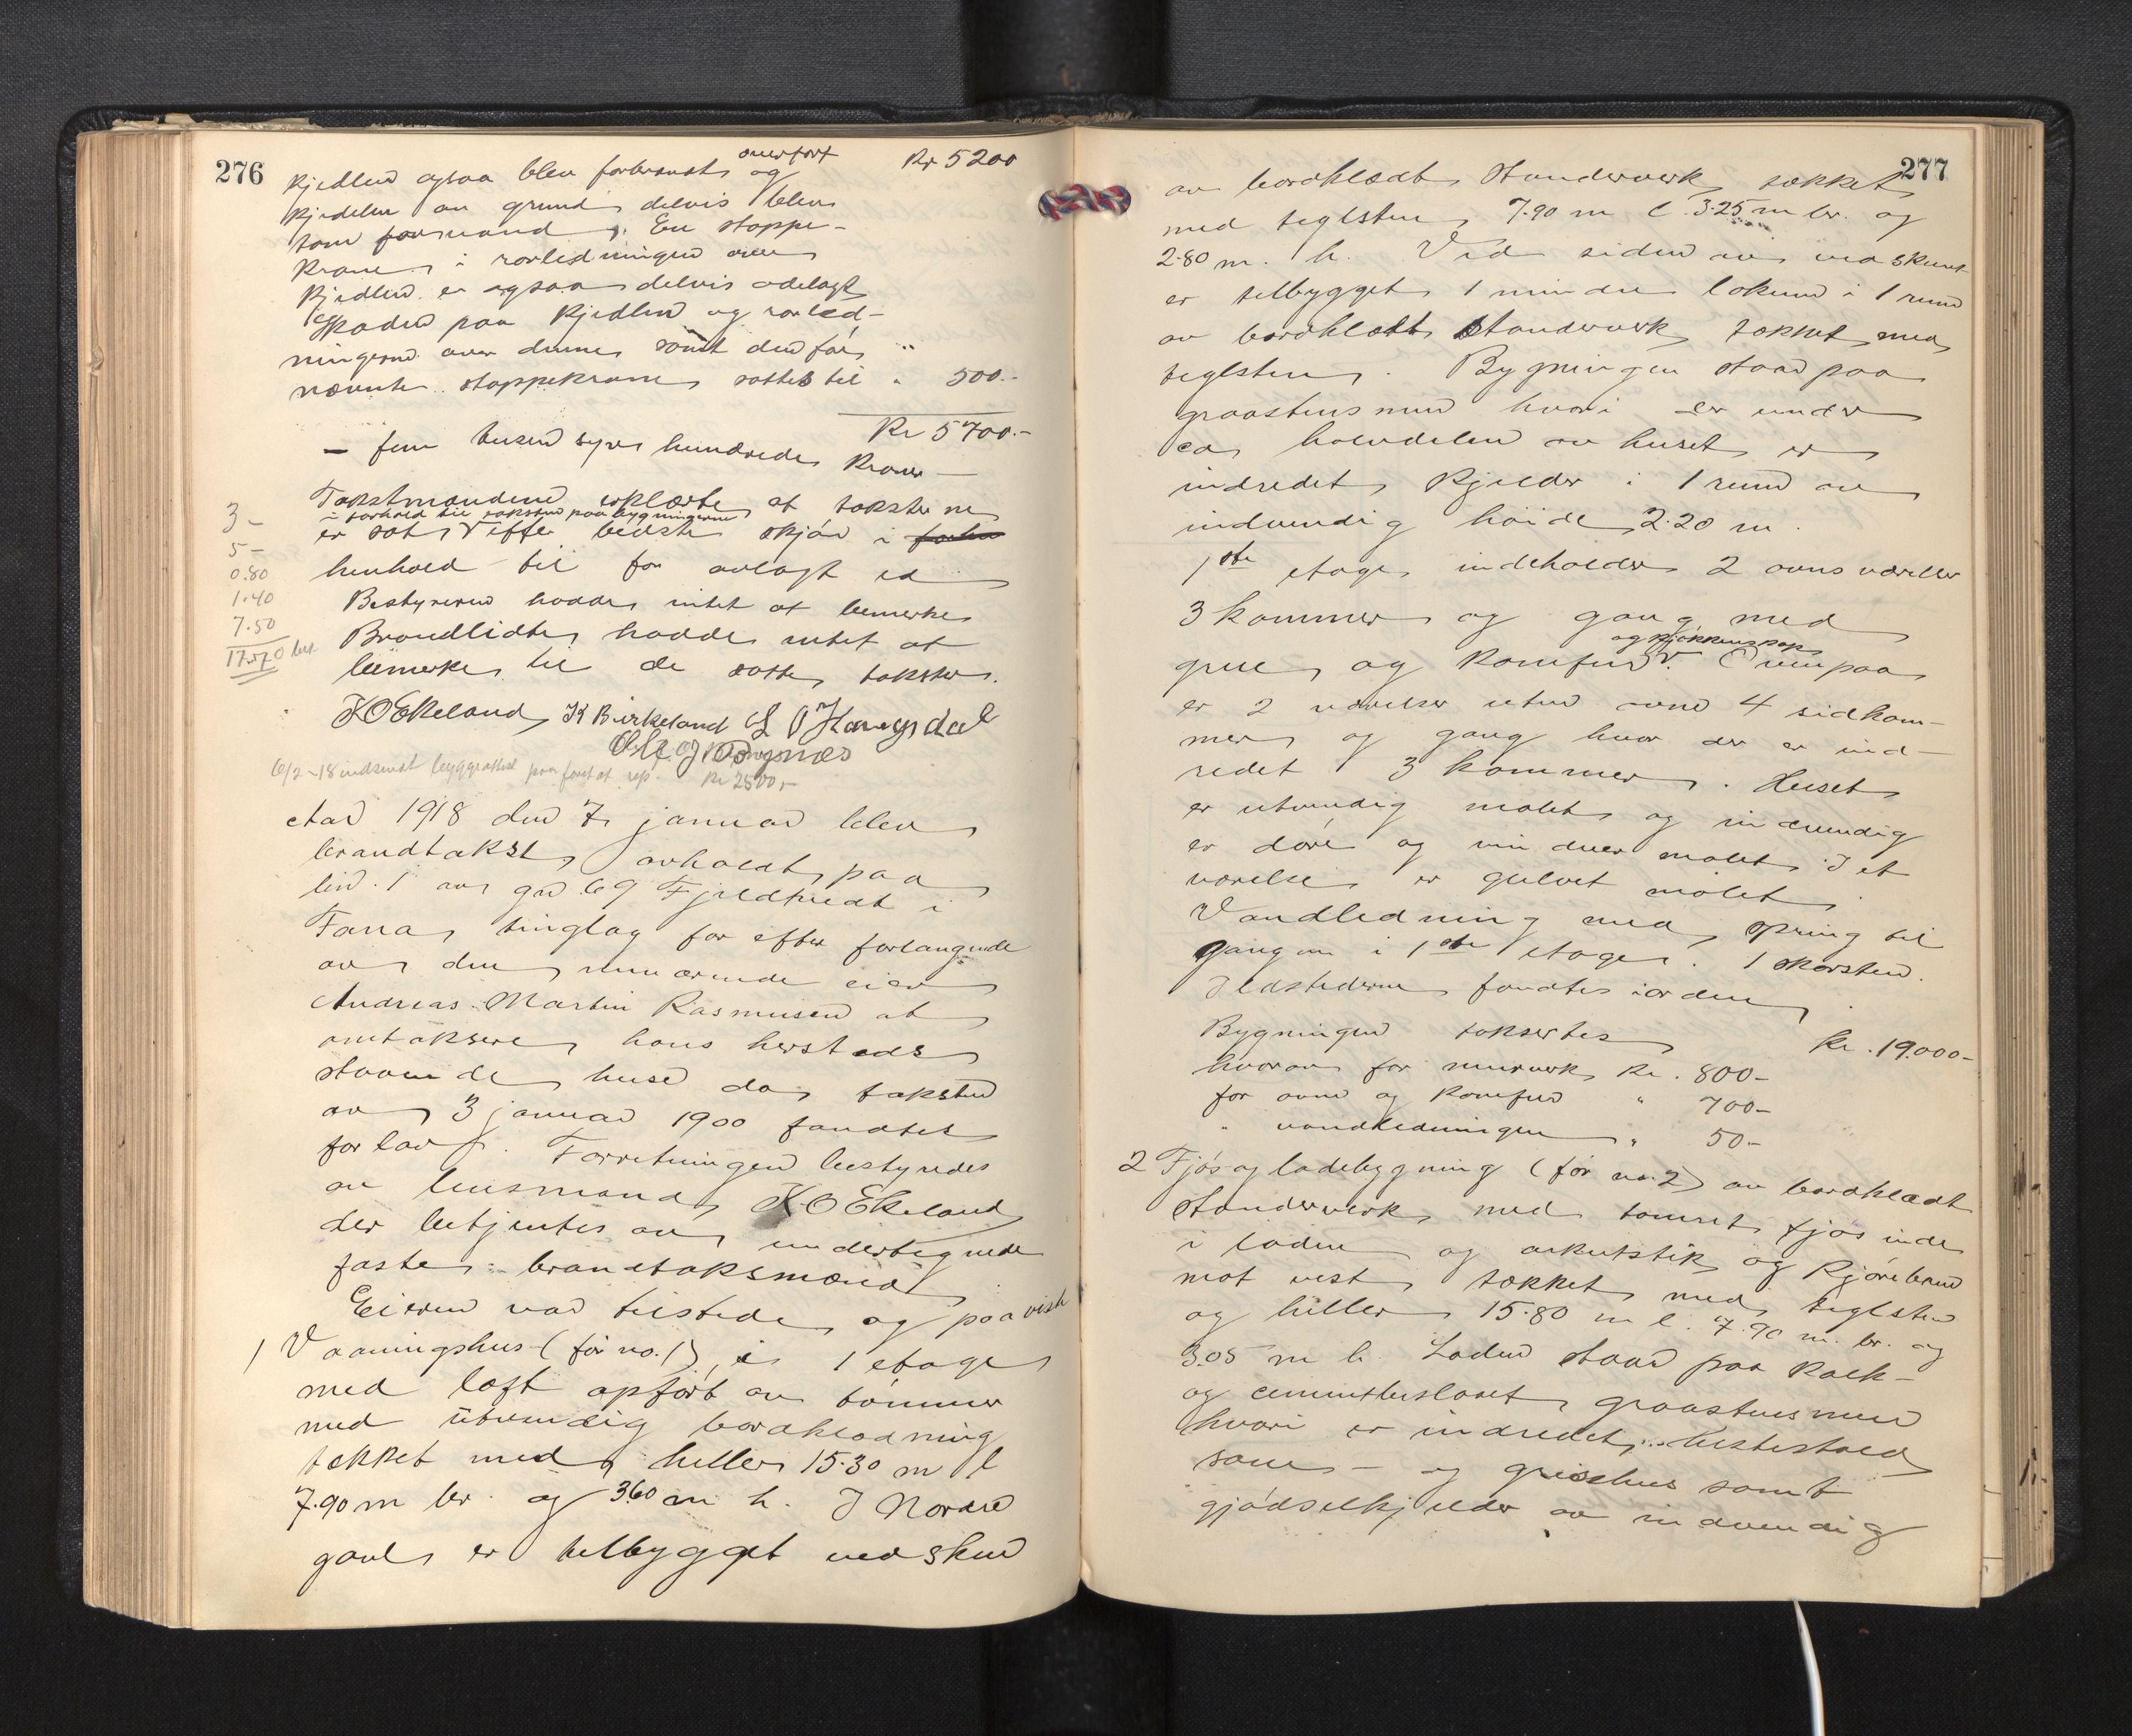 276
overført Kr 5200
kjedlen ogsaa blev forbrændt og
kjedelen av grund delvis blev
som . En stoppe-
krane i rørledningen over
kjedlen er ogsaa delvis ødelagt
Skaden paa kjedlen og rørled-
ningerne over denne samt den før
nævnte stoppekrane sattes til " 500.-
Kr 5700.-
- fem tusen syv hundrede kroner -
Takstmændene erklærte at taksterne
i forhold til taksten paa bygningerne
er sat efter bedste skjøn i
henhold til før avlagt ed
3 -
5 -
0.80
1.40
7.50
17.70
Bestyreren hadde intet at bemerke
Brandlidte hadde intet at
bemerke til de satte takster.
K O Ekeland K Birkeland L O Haugsdal
6/2-18 indsendt byggeattest paa foretat rep. Kr 2500,-
Aar 1918 den 7 januar blev
brandtakst avholdt paa
br. 1 av gr 69 Fjeldtvedt i
Fana tinglag for efter forlangende
av den nuværende eier
Andreas Martin Rasmussen at
omtaksere hans herstads
staaende huse da taksten
av 3 januar 1900 fandtes
for lav. Forretningen bestyredes
av lensmand K O Ekeland
der betjentes av undertegnede
faste brandtaksmænd
Eieren var tilstede og paaviste
1 Vaaningshus (før no. 1) i 1 etage
med loft opført av tømmer
med utvendig bordklædning
tækket med heller 15.30 m l
7.90 m br. og 3.60 m h. I Nordre
gavl er tilbygget vedskur
277
av bordklædt standerverk tækket
med teglsten 7.90 m l. 3.25 m br. og
2.80 m. h. Ved siden av vedskuret
er tilbygget 1 mindre lokum i 1 rum
av bordklædt standerverk tækket med
teglsten. Bygningen staar paa
graastensmur hvori er under
ca halvdelen av huset er
indredet kjelder i 1 rum av
indvendig høide 2.20 m.
1ste etage indeholder 2 ovnsværelser
3 kammer og gang med
og kjøkkenskap
grue og komfur. Ovenpaa
er 2 værelser uten ovne 4 sidkam-
mer og gang hvor der er ind-
redet 3 kammer. Huset
er utvendig malet og indvendig
er døre og vinduer malet. I et
værelse er gulvet malet.
Vandledning med spring til
gangen i 1ste etage. 1 skorsten.
Ildstederne fandtes i orden
Bygningen taksertes Kr. 19.000-
hvorav for murverk Kr. 800-
for ovne og komfur " 700-
" vandledningen " 50-
2 Fjøs og ladebygning (før no. 2) av bordklædt
standerverk med tømret fjøs inde
i laden og og kjørebru
mot vest tækket med teglsten
og heller 15.80 m l. 7.90 m. br. og
3.05 m h. Laden staar paa kalk-
og cementbeslaaet graastensmur
hvori er indredet hestestald
saue- og grisehus samt
gjødselkjelder av indvendig